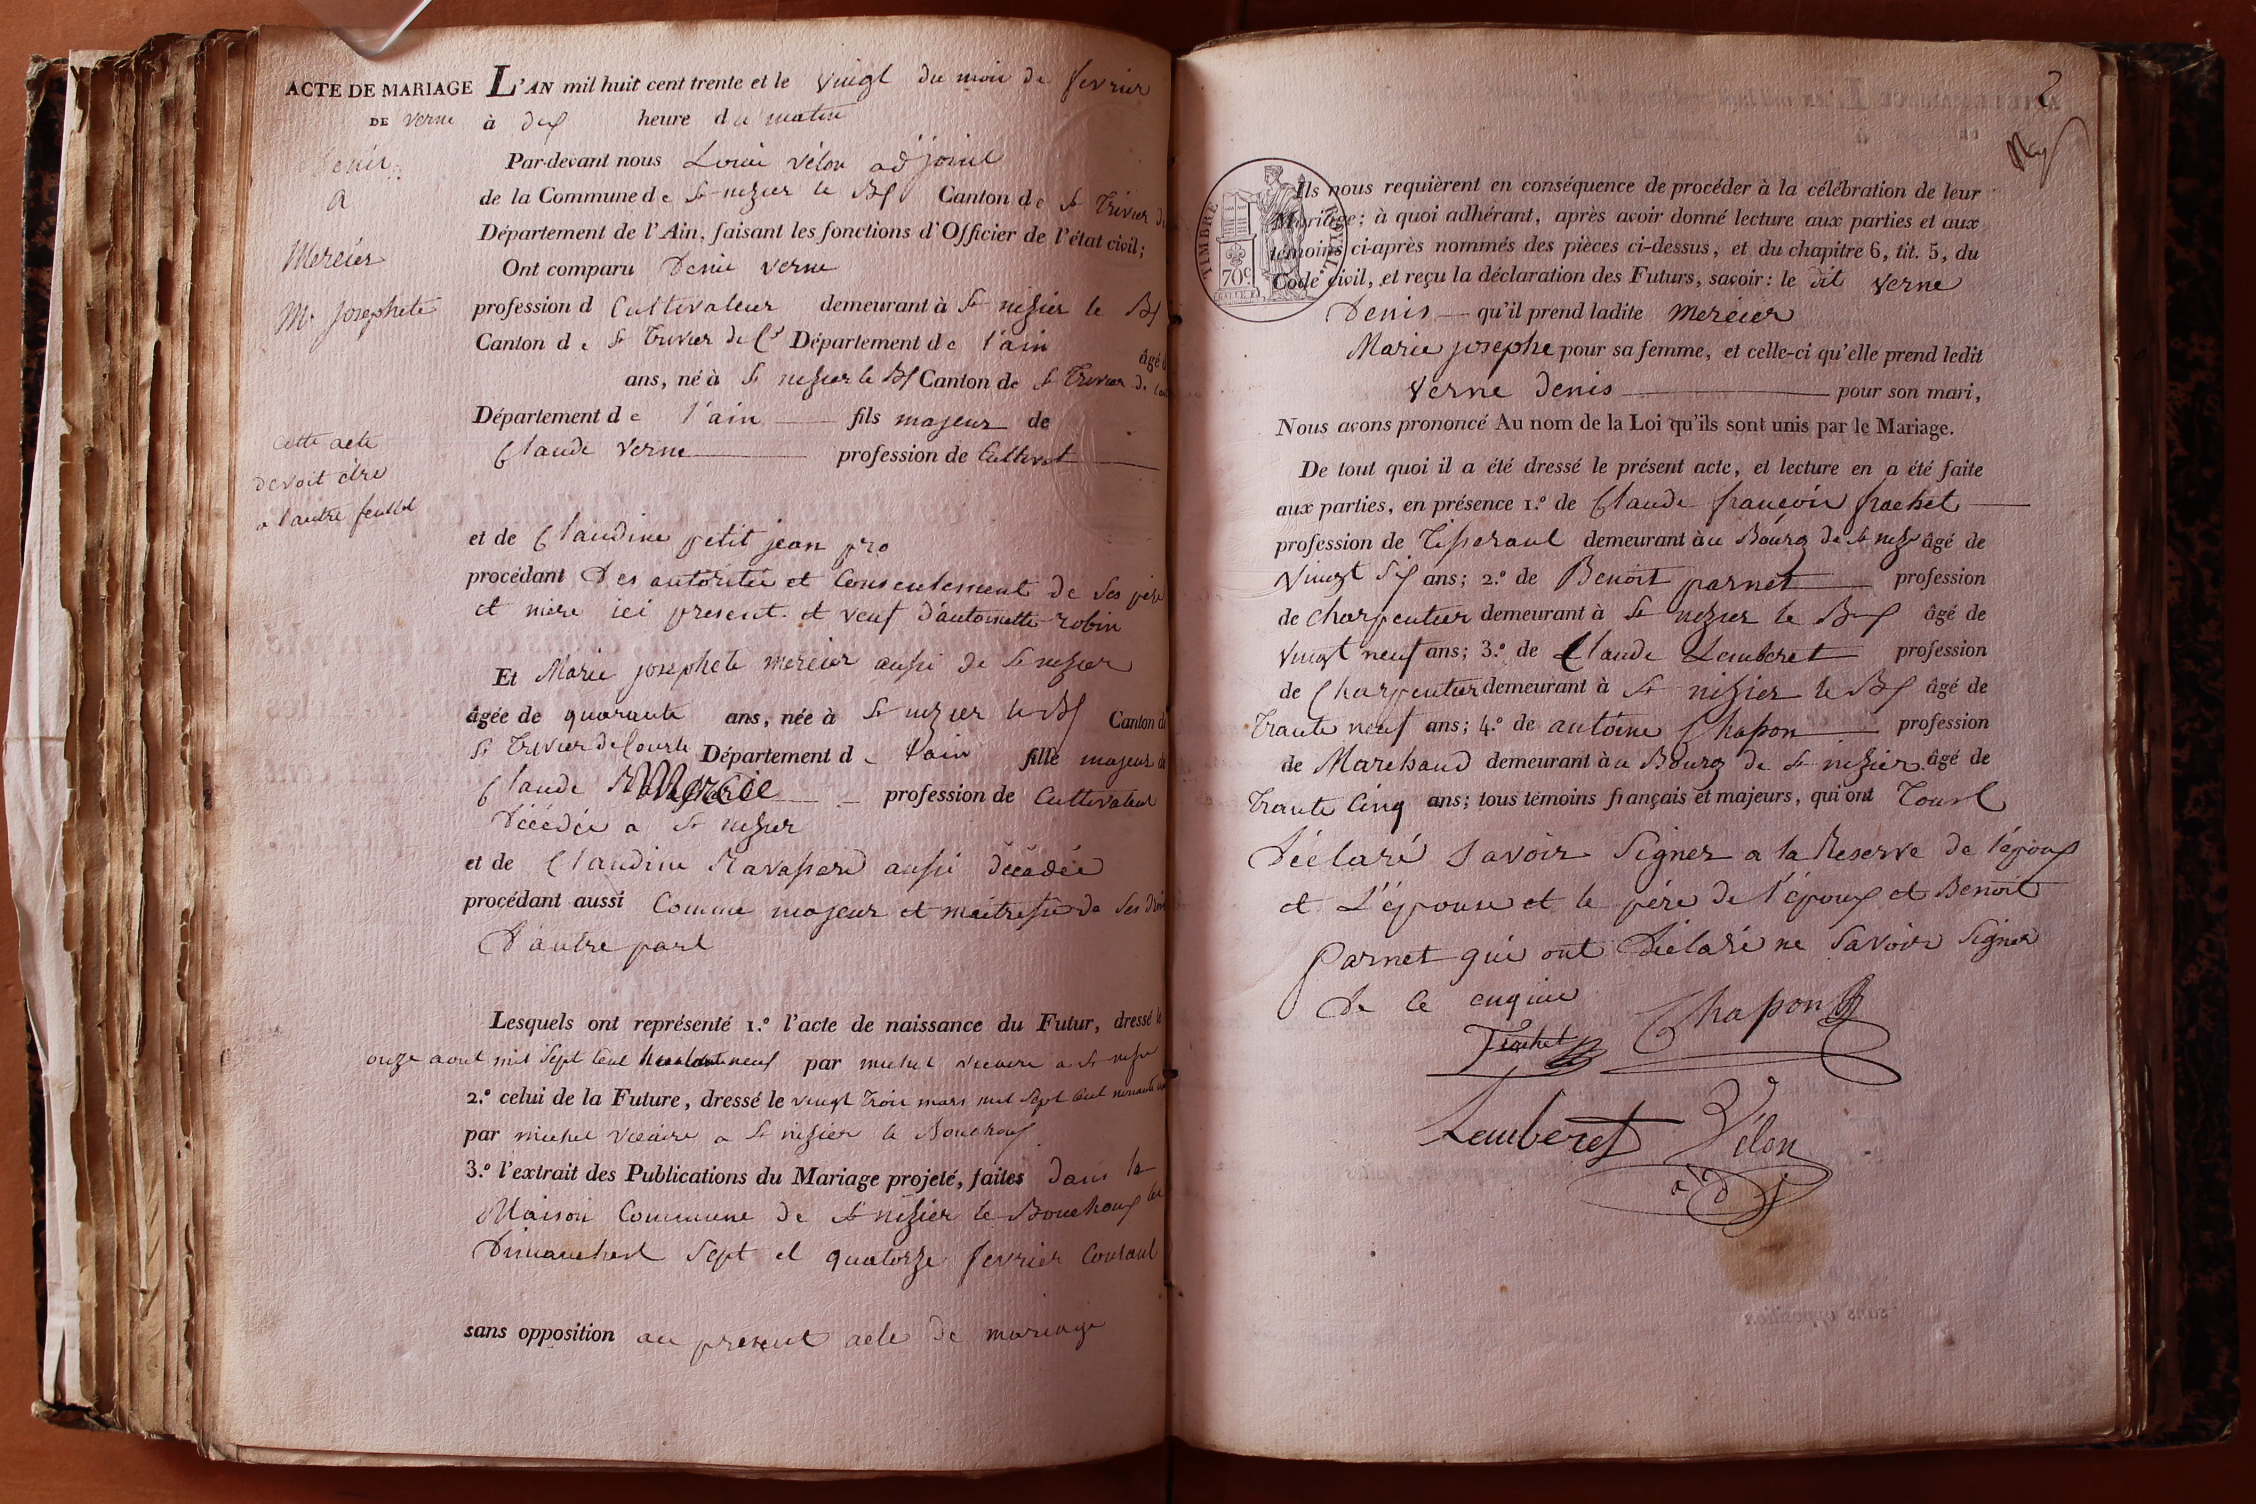 ACTE DE MARIAGE L'AN mil huit cent trente et le vingt du mois de fevrier
DE verne à dix heure du matin
Denis
Par-devant nous Louis vélon adjoint
a
de la Commune de St nizier le Bx Canton de St Trivier de
Département de l'Ain, faisant les fonctions d'Officier de l'état civil;
Mercier
Ont comparu Denis verne
Mie Josephete
profession d Cultivateur demeurant à St nizier le Bx
Canton de St Trivier de Cs Département de l'ain âgé d
ans, né à St nizier le Bx Canton de St Trivier de
Département de l'ain fils majeur de
cette acte
Claude verne profession de Cultivat
devoit être
a l'autre feuillet
et de Claudine petit jean pro
procédant Des autoritée et Consentement de Ses père
et mère ici present et veuf d'antoinette robin
Et Marie josephete mercier aussi de St nizier
âgée de quarante ans, née à St nizier le Bx Canton d
St Trivier de Courte Département de l'ain fille majeur de
Claude Mercie profession de Cultivateur
Décédée a St nizier
et de Claudine Ravassard aussi décédée
procédant aussi Comme majeur et maitresse de Ses droi
D'autre part
Lesquels ont représenté 1.º l'acte de naissance du Futur, dressé le
onze aout mil Sept Cent neuf par michel vicaire a St nizie
2.º celui de la Future, dressé le vingt Trois mars mil Sept Cent nonante
par michel vicaire a St nizier le Bouchoux
3.º l'extrait des Publications du Mariage projeté, faites dans la
Maison Commune de St nizier le Bouchoux les
Dimanchest Sept et quatorze fevrier Courant
sans opposition au present acte de mariage
2
TIMBRE ROYAL
70c
Ils nous requièrent en conséquence de procéder à la célébration de leur
Mariage; à quoi adhérant, après avoir donné lecture aux parties et aux
témoins ci-après nommés des pièces ci-dessus, et du chapitre 6, tit. 5, du
Code civil, et reçu la déclaration des Futurs, savoir: le dit verne
Denis qu'il prend ladite mercier
Marie josephe pour sa femme, et celle-ci qu'elle prend ledit
verne denis pour son mari,
Nous avons prononcé Au nom de la Loi qu'ils sont unis par le Mariage.
De tout quoi il a été dressé le présent acte, et lecture en a été faite
aux parties, en présence 1.º de Claude françois frachet
profession de Tisserant demeurant à u Bourg de St niz âgé de
Vingt Six ans; 2.º de Benoit parnet profession
de charpentier demeurant à St nizier le Bx âgé de
vingt neuf ans; 3.º de Claude Lemberet profession
de Charpentier demeurant à St nizier le Bx âgé de
Trante neuf ans; 4.º de antoine Chapon profession
de Marchand demeurant à u Bourg de St nizier âgé de
Trante Cinq ans; tous témoins français et majeurs, qui ont Tourt
Déclaré Savoir Signer a la Reserve de l'époux
et L'épouse et le père de l'époux et Benoit
Parnet qui ont Déclaré ne Savoir Signer
De Ce enquise
Frachet Chapon
Lemberet Vélon
adj
sans opposition